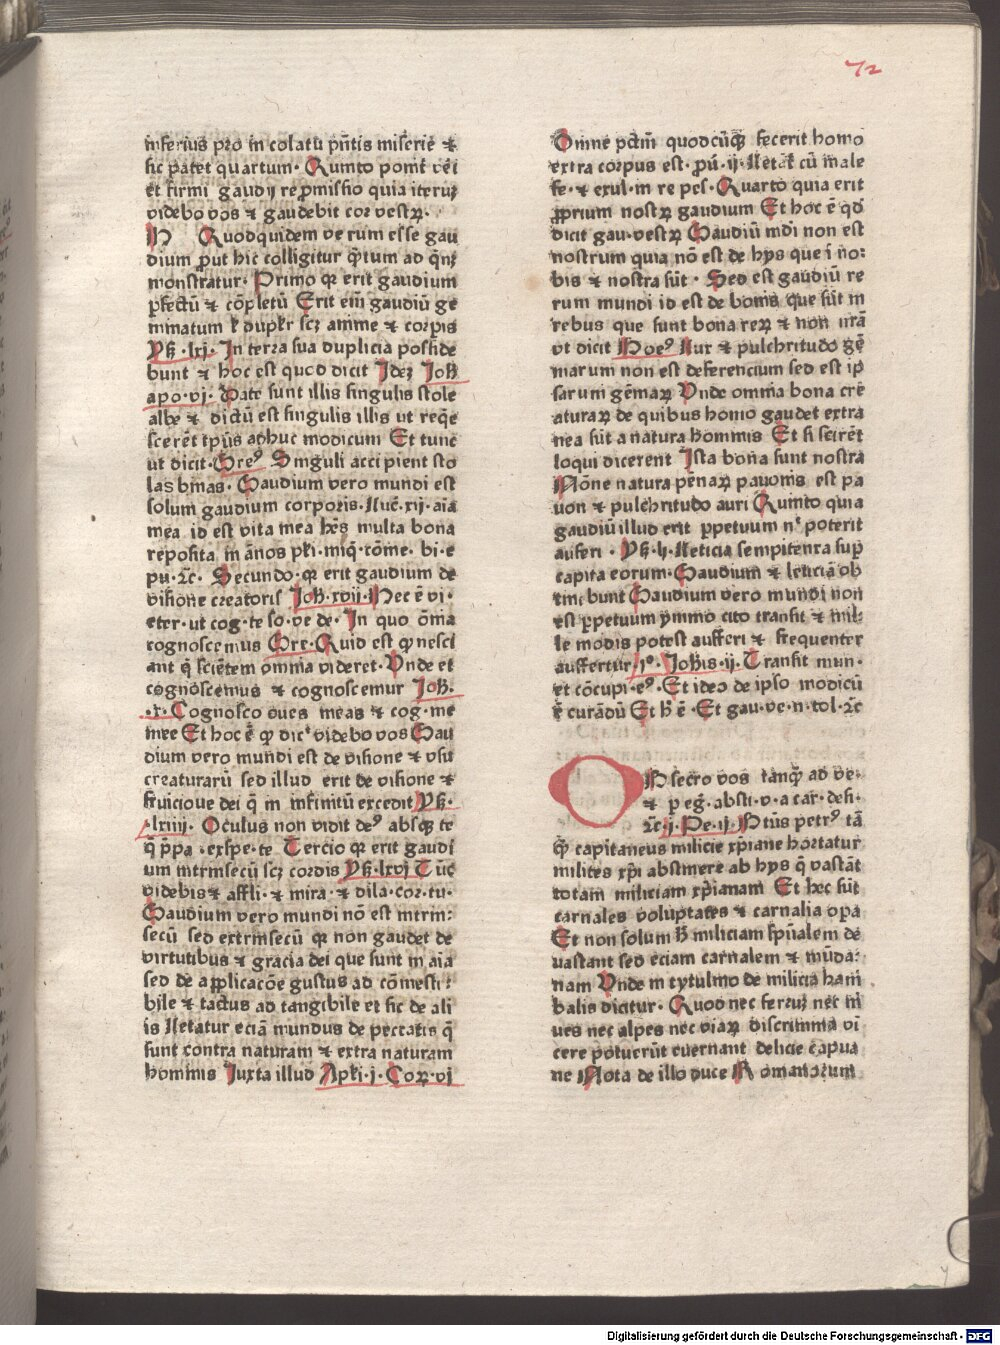 72
inferius pro in colatu pñtis miserie ⁊
sic patet quartum. Quinto ponit̃ rei
et firmi gaudij repromissio quia iterũ
videbo vos ⁊ gaudebit cor vestꝝ.
N Quodquidem verum esse gau
dium ꝓut hic colligitur q̃tum ad q̃nꝫ
monstratur. Primo qꝛ erit gaudium
ꝑfectũ ⁊ cõpletũ Erit eiñ gaudiũ ge
minatum ł dupłr scꝫ anime ⁊ corpis
Yß .lxj. In terra sua duplicia posside
bunt ⁊ hoc est quod dicit Ideꝫ Joħ
apo.vj. Date sunt illis singulis stole
albe ⁊ dictũ est singulis illis ut reqẽ
scerẽt tp̃us adhuc modicum Et tunc
ut dicit.Greꝰ Singuli accipient sto
las binas. Gaudium vero mundi est
solum gaudium corporis.Luc̃.xij.aĩa
mea id est vita mea hẽs multa bona
reposita in ãnos płi.miq̃.cõme.bi.e
pu.⁊c̃. Secundo.qꝛ erit gaudium de
visione creatoris Joħ.xvij.Hec ẽ vi.
eter.ut cog.te so.ve de. In quo õmia
cognoscemus Gre.Quid est qꝙ nesci
ant q̃ sciẽtem omnia videret.Unde et
cognoscemus ⁊ cognoscemur Joħ.
.x.Cognosco oues meas ⁊ cog.me
mee Et hoc ẽ qꝙ dicᵗ videbo vos Gau
dium vero mundi est de visione ⁊ vsu
creaturarũ sed illud erit de visione ⁊
fruicioue dei q̃ in infinitũ excedit Yß.
.lxiiij. Oculus non vidit deꝰ absqꝫ te
q̃ p̃pa .exspe.te Tercio qꝛ erit gaudi
um intrinsecũ scꝫ cordis Yß.lxvj Tũc
videbis ⁊ affli.⁊ mira.⁊ dila.cor.tu.
Gaudium vero mundi nõ est intrin:
secũ sed extrinsecũ qꝛ non gaudet de
virtutibus ⁊ gracia dei que sunt in aĩa
sed de applicacõe gustus ad cõmesti:
bile ⁊ tactus ad tangibile et sic de ali
is Letatur eciã mundus de peccatis q̃
sunt contra naturam ⁊ extra naturam
hominis Iuxta illud Apłi.j.Coꝝ.vj
Omne pctm̃ quodcũqꝫ fecerit homo
extra corpus est.pũ.ij.Letãt cũ male
fe.⁊ exul.in re pes.Quarto quia erit
ꝓprium nostꝝ gaudium Et hoc ẽ qđ
dicit gau.vestꝝ Gaudiũ mdi non est
nostrum quia nõ est de hys que ĩ no:
bis ⁊ nostra sũt. Sed est gaudiũ re
rum mundi id est de bonis que sũt in
rebus que sunt bona reꝝ ⁊ non nrã
vt dicit Boeꝰ Lux ⁊ pulchritudo gẽ
marum non est deferencium sed est ip
sarum gẽmaꝝ Unde omnia bona crẽ
aturaꝝ de quibus homo gaudet extra
nea sũt a natura hominis Et si scirẽt
loqui dicerent Ista bona sunt nostra
Nõne natura pẽnaꝝ pauonis est pa
uon ⁊ pulchritudo auri Quinto quia
gaudiũ illud erit ꝑpetuum nᵉ poterit
auferi . Yß.lj.Leticia sempitenra suꝑ
capita eorum.Gaudium ⁊ leticiã ob
tinebunt Gaudium vero mundi non
est ꝑpetuum ymmo cito transit ⁊ mil:
le modis potest aufferi ⁊ frequenter
auffertur.jᵃ.Joħis.ij.Transit mun.
et cõcupi.eꝰ.Et ideo de ipso modicũ
ẽ curãdũ Et ħ ẽ .Et gau.ve.n.tol.⁊c̃
OBsecro vos tanq̃ ad ve.
⁊ peg̃.absti.v.a car.desi.
⁊c̃.j.Pe.ij.Btũs petrꝰ tã
q̃ capitaneus milicie xp̃iane hortatur
milites xp̃i abstinere ab hys q̃ vastãt
totam miliciam xp̃ianam Et hec sũt
carnales voluptates ⁊ carnalia opa
Et non solum ħ miliciam spũalem de
uastant sed eciam carnalem ⁊ mũda:
nam Unde in tytulino de milicia hañi
balis dicitur. Quod nec ferrũ nec ni
ues nec alpes nec viaꝝ discrimina vi
cere potuerũt euernant delicie capua
ne Nota de illo duce Romanorum
Digitalisierung gefördert durch die Deutsche Forschungsgemeinschaft - DFG